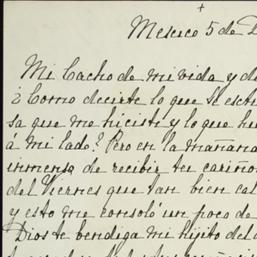 Mexico 5 de D
Mi Cacho de mi vida y de
¿Como decirte lo que se est
sa que me hiciste y lo que hu
á mi lado? Pero en la mañana
inmenso de recibir tu cariño
del Viernes que tan bien cal
y esto me consoló un poco de
Dios te bendiga mi hijito del a